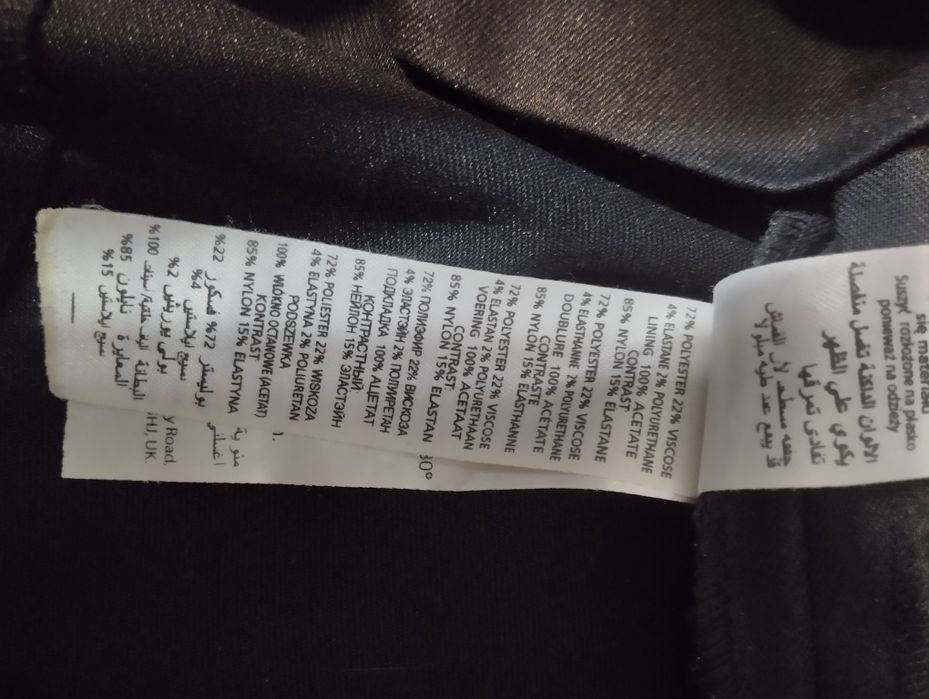 72% POLYESTER 22% VISCOSE
4% ELASTANE 2% POLYURETHANE
LINING 100% ACETATE
CONTRAST
85% NYLON 15% ELASTANE
72% POLYESTER 22% VISCOSE
4% ELASTHANNE 2% POLYURETHANE
DOUBLURE 100% ACETATE
CONTRASTE
85% NYLON 15% ELASTHANNE
72% POLYESTER 22% VISCOSE
4% ELASTAN 2% POLYURETHAAN
VOERING 100% ACETAAT
CONTRAST:
85% NYLON 15% ELASTAN
72% ПОЛИЭФИР 22% ВИСКОЗА
4% ЭЛАСТЭЙН 2% ПОЛИУРЕТАН
ПОДКЛАДКА 100% АЦЕТАТ
КОНТРАСТНЫЙ:
85% НЕЙЛОН 15% ЭЛАСТЭЙН
72% POLIESTER 22% WISKOZA
4% ELASTYNA 2% POLIURETAN
PODSZEWKA
100% WŁÓKNO OCTANOWE (ACETAT)
KONTRAST
85% NYLON 15% ELASTYNA
%22 فسكوز %72 بوليستر
%4
%2
%100 البطانة
%85 نايلون
%15
30°
).
y Road,
HJ, UK.
się materiału
Suszyć rozłożone na płasko
ponieważ na odzieży
الالوان الداكنة تغسل منفصلة
يكوي على الظهر
تفادى تمرقها